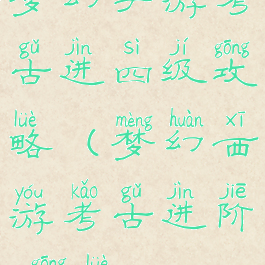 游 考
gǔ jìn sì jí gōng
古 进 四 级 攻
lüè mèng huàn xī
略 （ 梦 幻 西
yóu kǎo gǔ jìn jiē
游 考 古 进 阶
gōng lüè